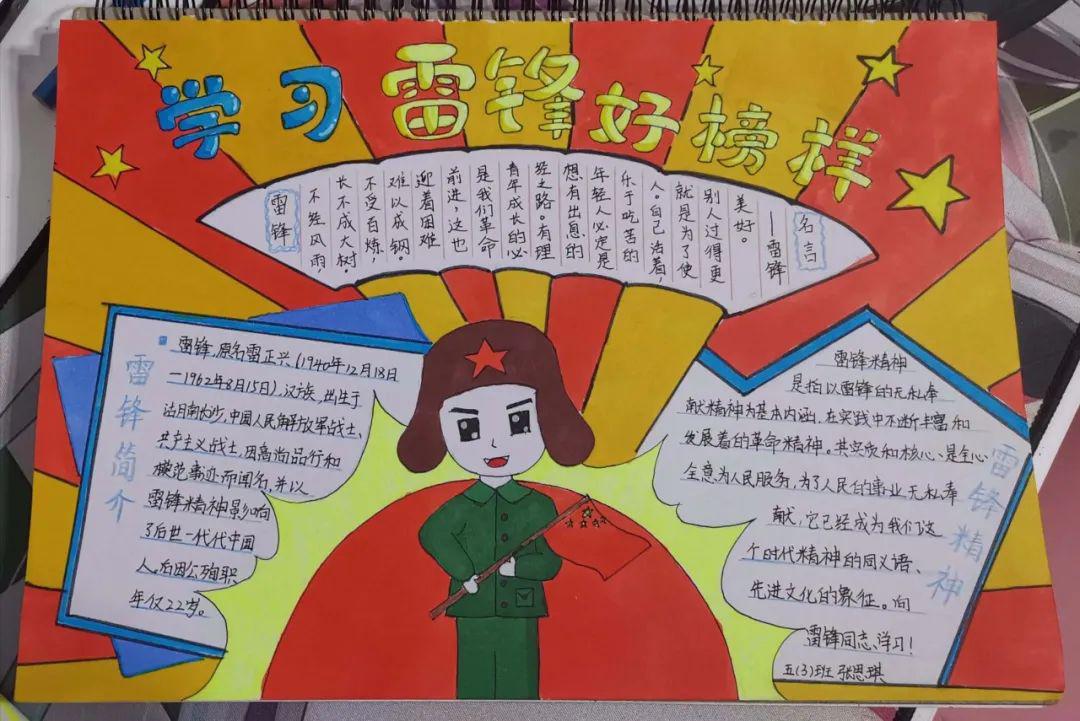 学习雷锋好榜样
雷锋
不经风雨,
长不成大树。
不受百炼,
难以成钢。
迎着困难
前进,这也
是我们革命
青年成长的必
经之路。有理
想有出息的
年轻人必定是
乐于吃苦的
人。自己活着,
就是为了使
别人过得更
美好。
——雷锋
名言
雷锋简介
雷锋,原名雷正兴(1940年12月18日
—1962年8月15日),汉族,出生于
湖南长沙,中国人民解放军战士、
共产主义战士,因高尚品行和
模范事迹而闻名,并以
雷锋精神影响
了后世一代代中国
人。后因公殉职
年仅22岁。
雷锋精神
雷锋精神
是指以雷锋的无私奉
献精神为基本内涵,在实践中不断丰富和
发展着的革命精神。其实质和核心是全心
全意为人民服务,为了人民的事业无私奉
献,它已经成为我们这
个时代精神的同义语、
先进文化的象征。向
雷锋同志学习!
五(3)班 张思琪